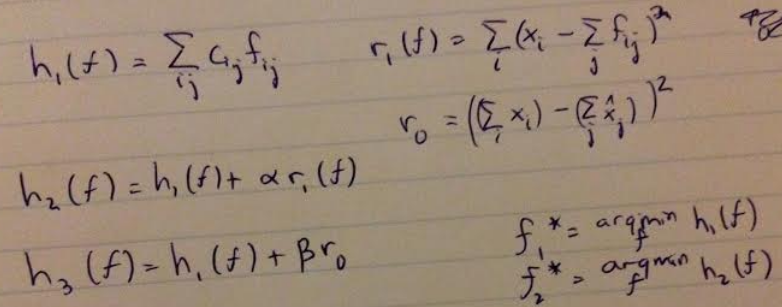 h₁(f) = Σ_{ij} c_{ij} f_{ij}
r₁(f) = Σ_i (x_i − Σ_j f_{ij})²
r₀ = ((Σ_i x_i) − (Σ_j x̂_j))²
h₂(f) = h₁(f) + α r₁(f)
h₃(f) = h₁(f) + β r₀
f₁* = argmin_f h₁(f)
f₂* = argmin_f h₂(f)